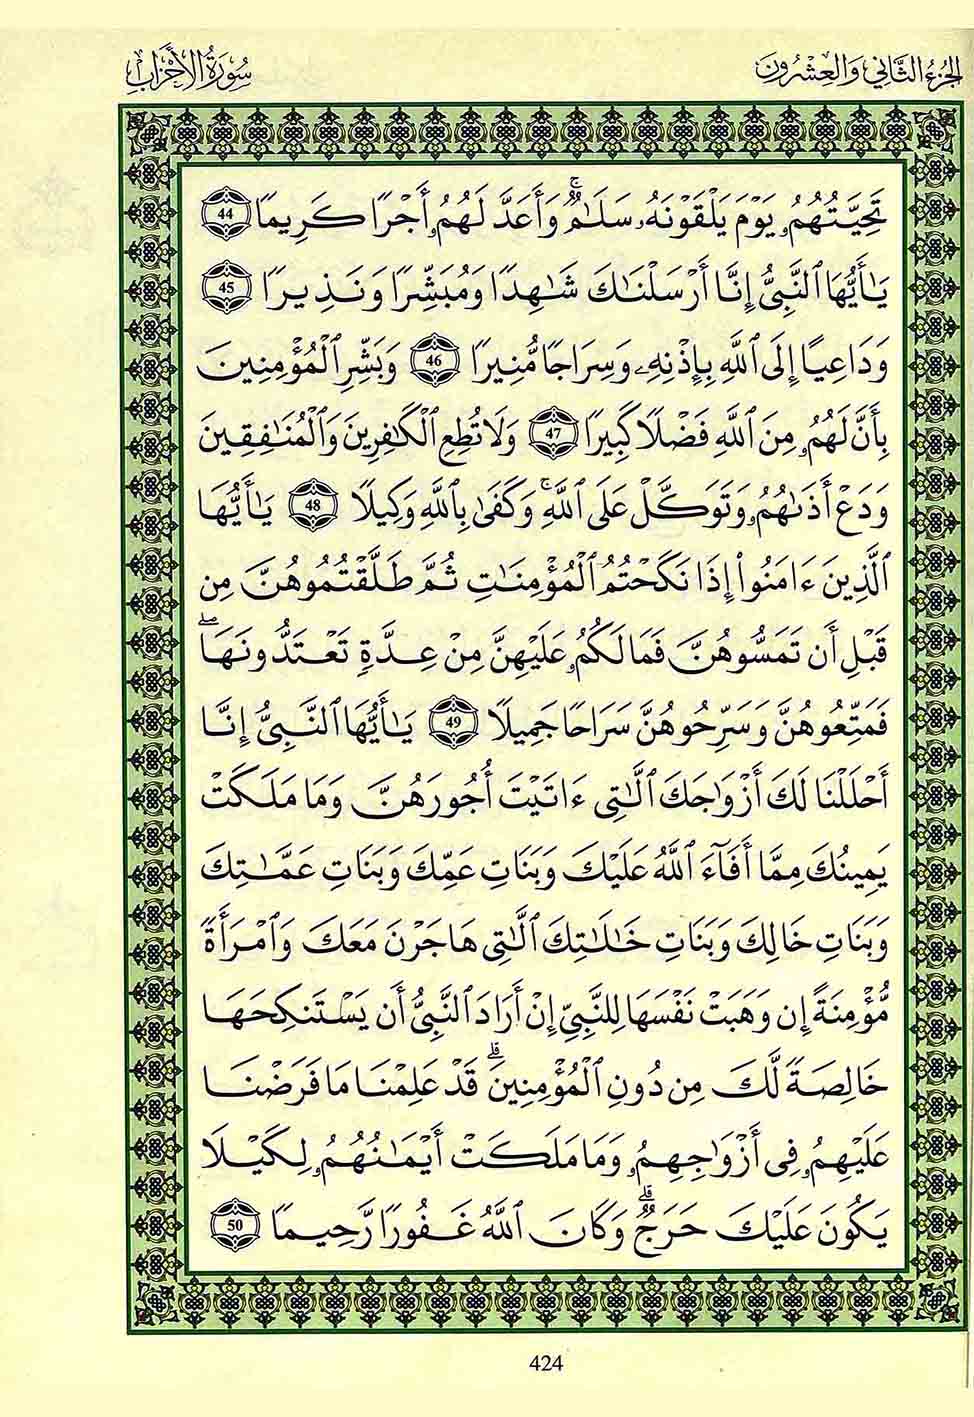 الجزء الثاني والعشرون
سورة الأحزاب
تَحِيَّتُهُمُۥ يَوْمَ يَلْقَوْنَهُۥ سَلَٰمٌۚ وَأَعَدَّ لَهُمُۥ أَجْرًا كَرِيمًا 44
يَٰأَيُّهَا ٱلنَّبِيُّ إِنَّا أَرْسَلْنَٰكَ شَٰهِدًا وَمُبَشِّرًا وَنَذِيرًا 45
وَدَاعِيًا إِلَى ٱللَّهِ بِإِذْنِهِۦ وَسِرَاجًا مُّنِيرًا 46 وَبَشِّرِ ٱلْمُؤْمِنِينَ
بِأَنَّ لَهُمُۥ مِنَ ٱللَّهِ فَضْلًا كَبِيرًا 47 وَلَا تُطِعِ ٱلْكَٰفِرِينَ وَٱلْمُنَٰفِقِينَ
وَدَعْ أَذَىٰهُمُۥ وَتَوَكَّلْ عَلَى ٱللَّهِۚ وَكَفَىٰ بِٱللَّهِ وَكِيلًا 48 يَٰأَيُّهَا
ٱلَّذِينَ ءَامَنُوا۟ إِذَا نَكَحْتُمُ ٱلْمُؤْمِنَٰتِ ثُمَّ طَلَّقْتُمُوهُنَّ مِن
قَبْلِ أَن تَمَسُّوهُنَّ فَمَا لَكُمُۥ عَلَيْهِنَّ مِنْ عِدَّةٍ تَعْتَدُّونَهَاۖ
فَمَتِّعُوهُنَّ وَسَرِّحُوهُنَّ سَرَاحًا جَمِيلًا 49 يَٰأَيُّهَا ٱلنَّبِيُّ إِنَّا
أَحْلَلْنَا لَكَ أَزْوَٰجَكَ ٱلَّٰتِي ءَاتَيْتَ أُجُورَهُنَّ وَمَا مَلَكَتْ
يَمِينُكَ مِمَّا أَفَآءَ ٱللَّهُ عَلَيْكَ وَبَنَاتِ عَمِّكَ وَبَنَاتِ عَمَّٰتِكَ
وَبَنَاتِ خَالِكَ وَبَنَاتِ خَٰلَٰتِكَ ٱلَّٰتِي هَاجَرْنَ مَعَكَ وَٱمْرَأَةً
مُّؤْمِنَةً إِن وَهَبَتْ نَفْسَهَا لِلنَّبِيِّ إِنْ أَرَادَ ٱلنَّبِيُّ أَن يَسْتَنكِحَهَا
خَالِصَةً لَّكَ مِن دُونِ ٱلْمُؤْمِنِينَۗ قَدْ عَلِمْنَا مَا فَرَضْنَا
عَلَيْهِمُۥ فِي أَزْوَٰجِهِمُۥ وَمَا مَلَكَتْ أَيْمَٰنُهُمُۥ لِكَيْلَا
يَكُونَ عَلَيْكَ حَرَجٌۗ وَكَانَ ٱللَّهُ غَفُورًا رَّحِيمًا 50
424